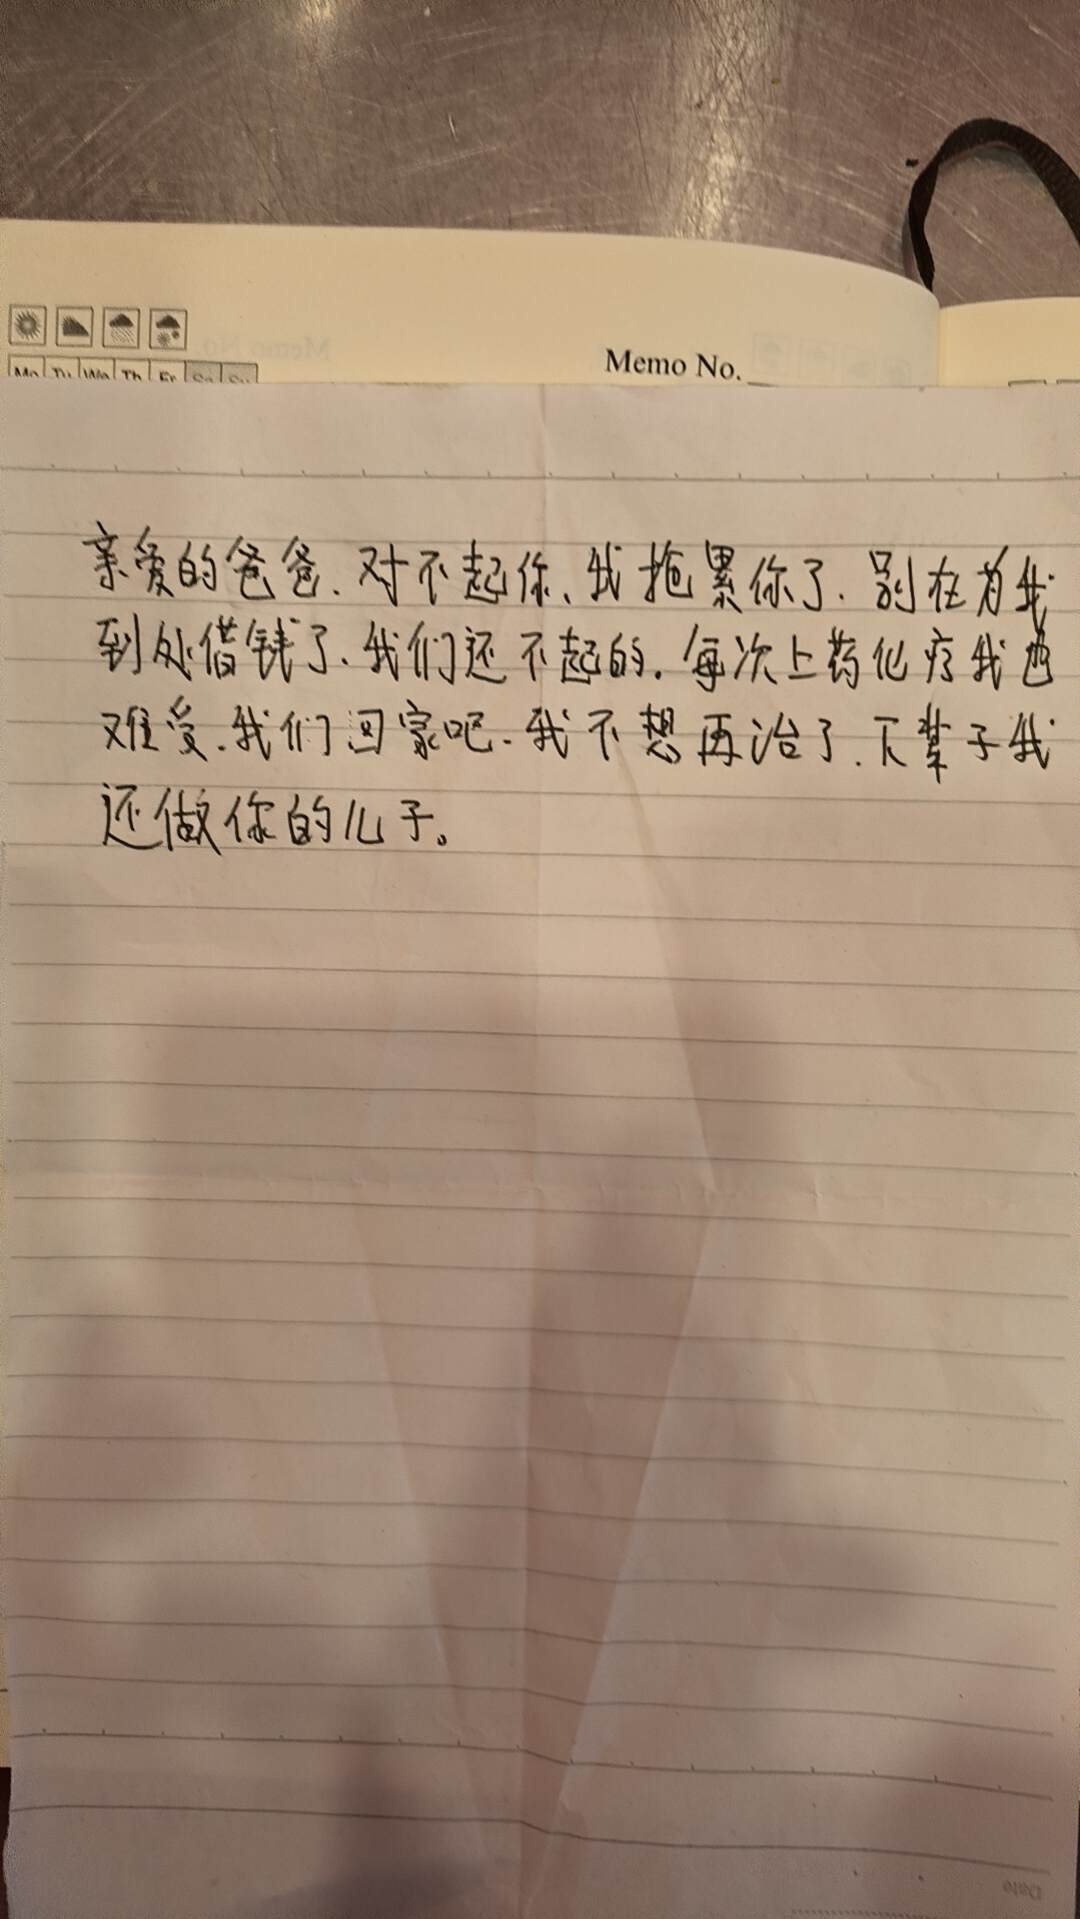 Mo Tu We Th Fr Sa Su
Memo No.
亲爱的爸爸.对不起你、我拖累你了.别在为我
到处借钱了、我们还不起的.每次上药化疗我也
难受.我们回家吧.我不想再治了.下辈子我
还做你的儿子。
Date